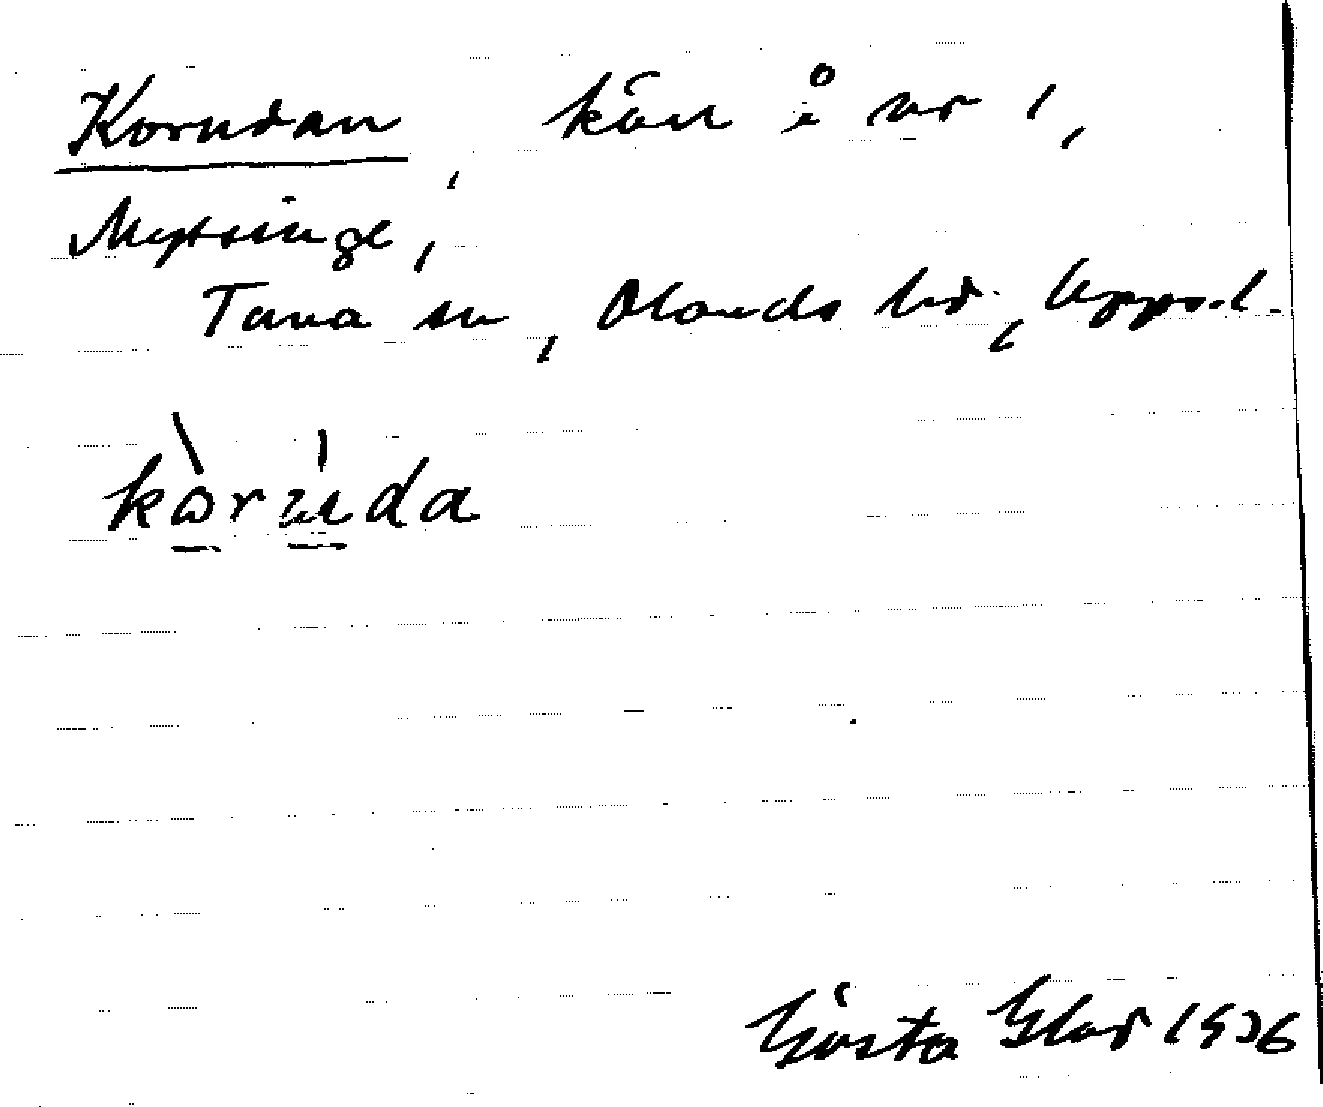 Korndan, kärr i nr 1,
Mysinge,
Tuna sn, Olands hd, Uppsl.
kòrúda
Gösta Elar 1936